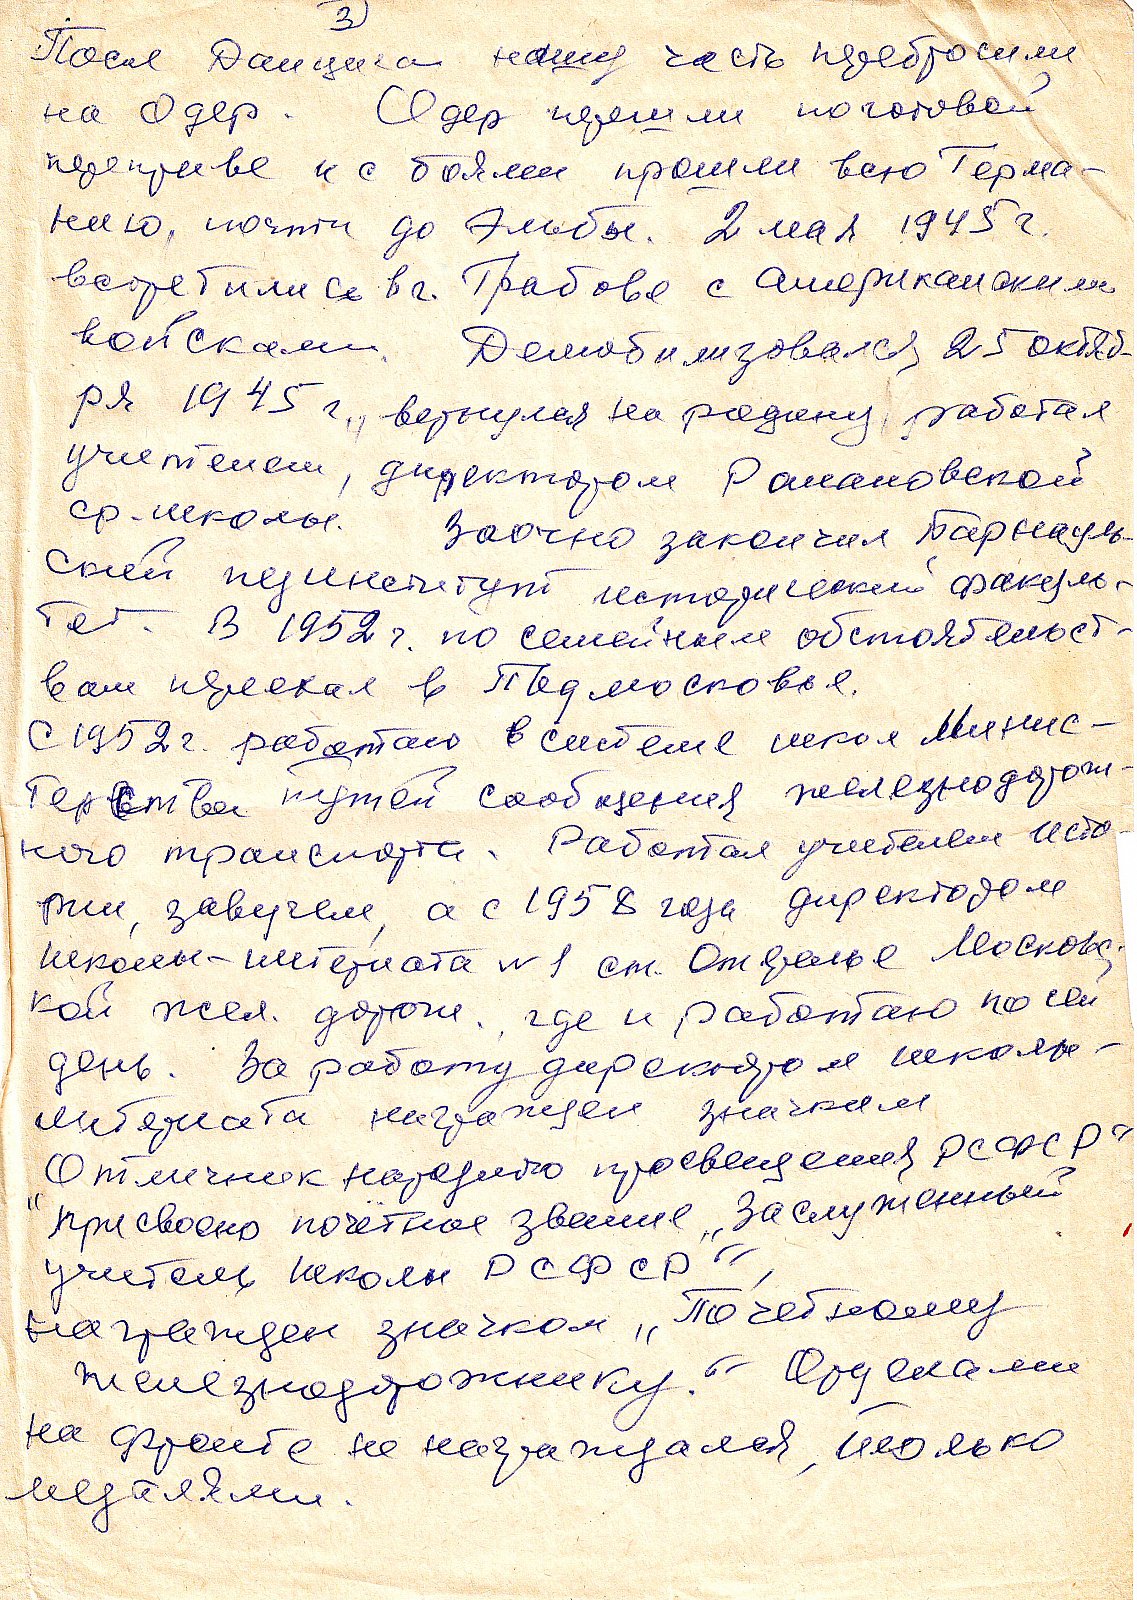 3)
После Данцига нашу часть перебросили
на Одер. Одер перешли по готовой
переправе и с боями прошли всю Герма-
нию, почти до Эльбы. 2 мая 1945 г.
встретились в г. Грабове с американскими
войсками. Демобилизовался 25 октяб-
ря 1945 г., вернулся на родину, работал
учителем, директором Романовской
ср. школы. Заочно закончил Барнауль-
ский пединститут исторический факуль-
тет. В 1952 г. по семейным обстоятельст-
вам переехал в Подмосковье.
С 1952 г. работаю в системе школ Минис-
терства путей сообщения железнодорож-
ного транспорта. Работал учителем исто-
рии, завучем, а с 1958 года директором
школы-интерната №1 ст. Московс-
кой жел. дороги, где и работаю по сей
день. За работу директором школы-
интерната награжден значком
Отличник народного просвещения РСФСР"
"присвоено почётное звание „Заслуженный
учитель школы РСФСР",
награжден значком „Почетному
железнодорожнику." Орденами
на фронте не награждался, только
медалями.